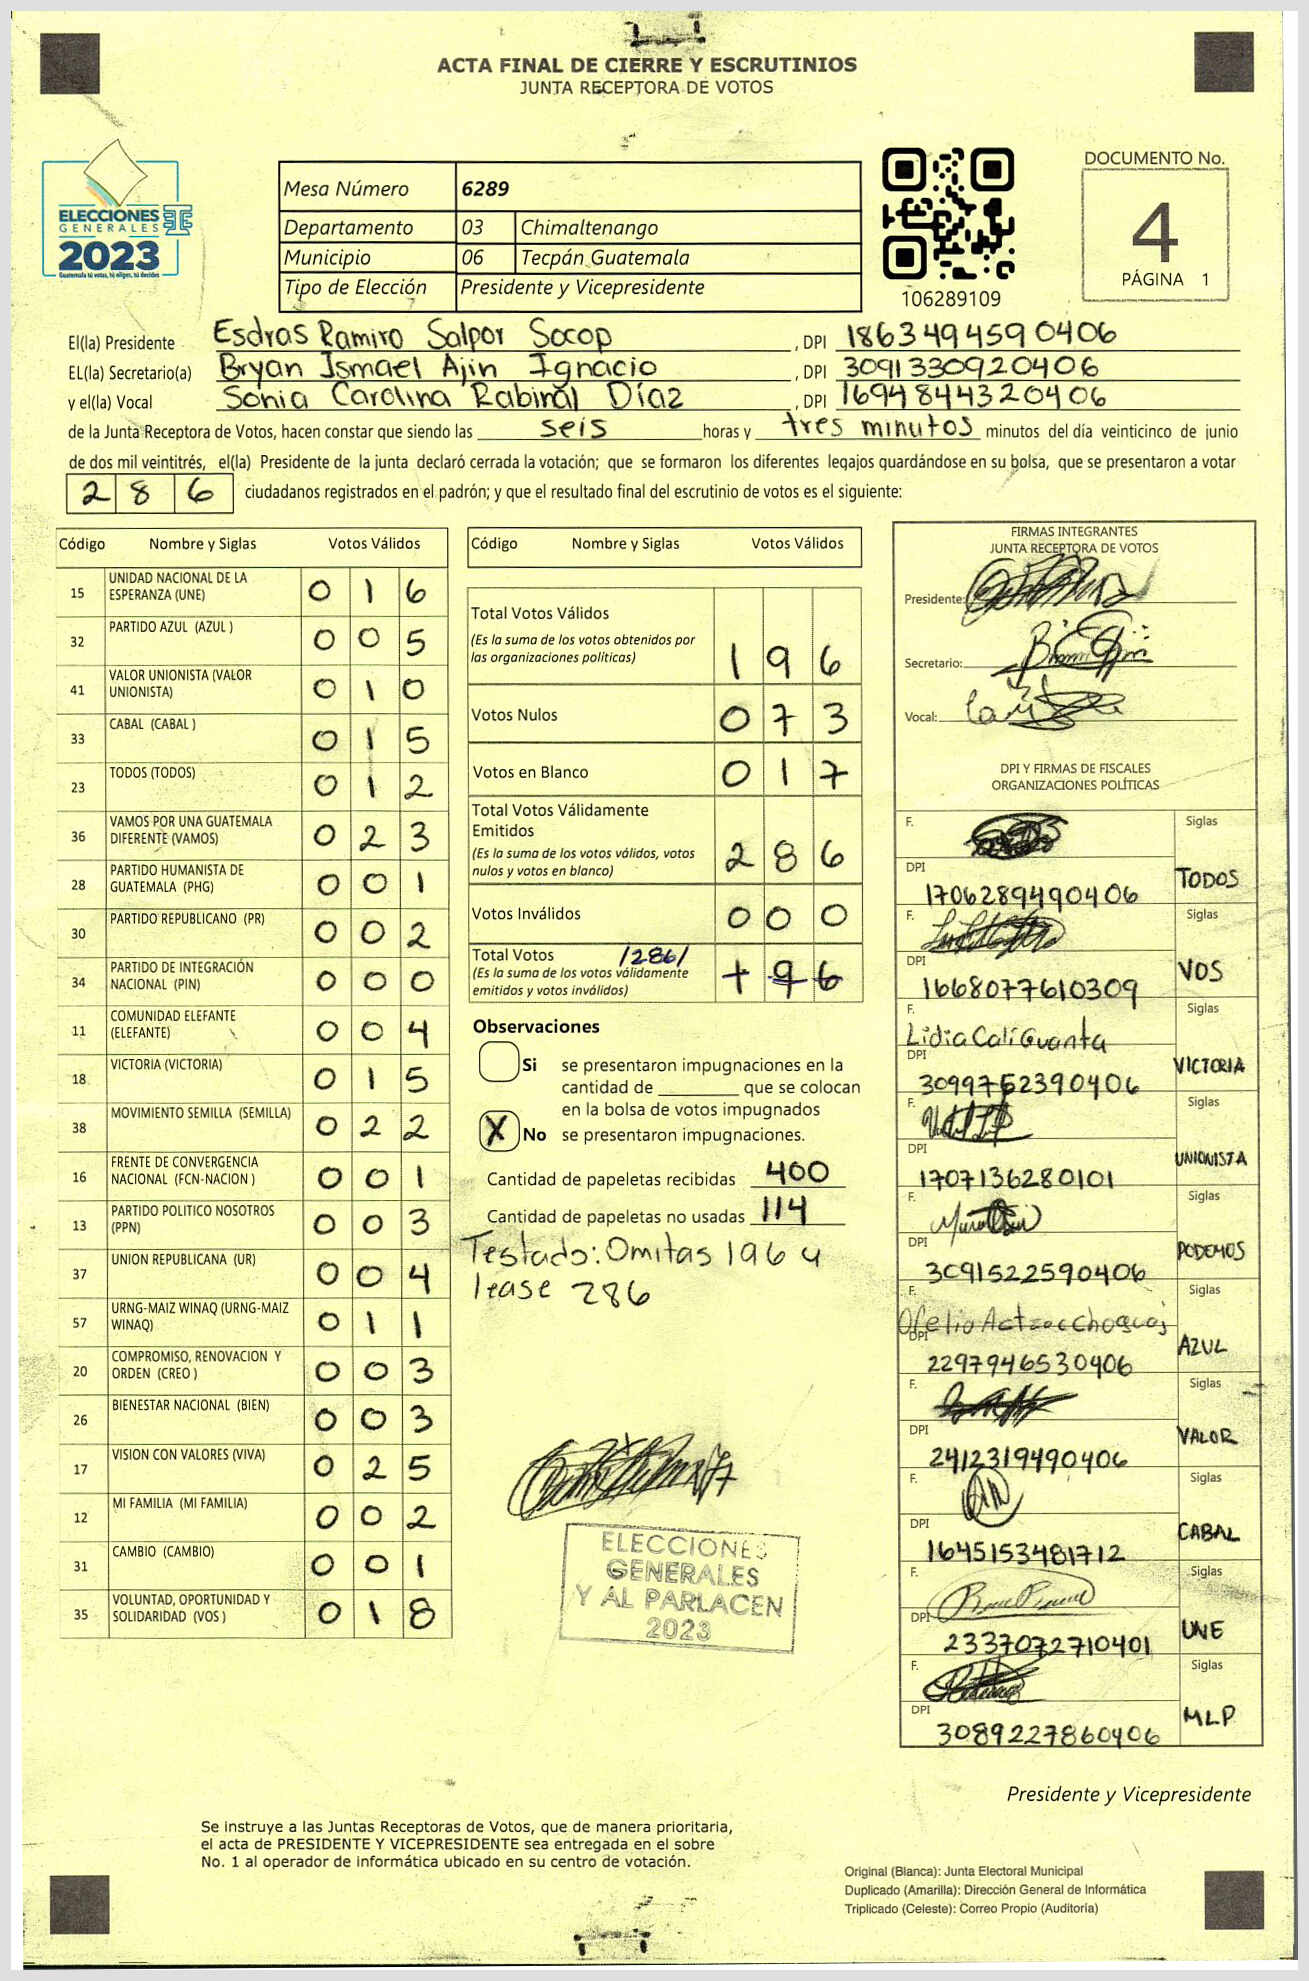 ACTA FINAL DE CIERRE Y ESCRUTINIOS
JUNTA RECEPTORA DE VOTOS
ELECCIONES
GENERALES
2023
Guatemala tú votas, tú eliges, tú decides
Mesa Número 6289
Departamento 03 Chimaltenango
Municipio 06 Tecpán Guatemala
Tipo de Elección Presidente y Vicepresidente
106289109
DOCUMENTO No.
4
PÁGINA 1
El(la) Presidente Esdras Ramiro Salpor Socop , DPI 1863494590406
EL(la) Secretario(a) Bryan Ismael Ajin Ignacio , DPI 3091330920406
y el(la) Vocal Sonia Carolina Rabinal Díaz , DPI 1694844320406
de la Junta Receptora de Votos, hacen constar que siendo las seis horas y tres minutos minutos del día veinticinco de junio
de dos mil veintitrés, el(la) Presidente de la junta declaró cerrada la votación; que se formaron los diferentes legajos guardándose en su bolsa, que se presentaron a votar
286 ciudadanos registrados en el padrón; y que el resultado final del escrutinio de votos es el siguiente:
Código Nombre y Siglas Votos Válidos
15 UNIDAD NACIONAL DE LA ESPERANZA (UNE) 0 1 6
32 PARTIDO AZUL (AZUL ) 0 0 5
41 VALOR UNIONISTA (VALOR UNIONISTA) 0 1 0
33 CABAL (CABAL ) 0 1 5
23 TODOS (TODOS) 0 1 2
36 VAMOS POR UNA GUATEMALA DIFERENTE (VAMOS) 0 2 3
28 PARTIDO HUMANISTA DE GUATEMALA (PHG) 0 0 1
30 PARTIDO REPUBLICANO (PR) 0 0 2
34 PARTIDO DE INTEGRACIÓN NACIONAL (PIN) 0 0 0
11 COMUNIDAD ELEFANTE (ELEFANTE) 0 0 4
18 VICTORIA (VICTORIA) 0 1 5
38 MOVIMIENTO SEMILLA (SEMILLA) 0 2 2
16 FRENTE DE CONVERGENCIA NACIONAL (FCN-NACION ) 0 0 1
13 PARTIDO POLITICO NOSOTROS (PPN) 0 0 3
37 UNION REPUBLICANA (UR) 0 0 4
57 URNG-MAIZ WINAQ (URNG-MAIZ WINAQ) 0 1 1
20 COMPROMISO, RENOVACION Y ORDEN (CREO ) 0 0 3
26 BIENESTAR NACIONAL (BIEN) 0 0 3
17 VISION CON VALORES (VIVA) 0 2 5
12 MI FAMILIA (MI FAMILIA) 0 0 2
31 CAMBIO (CAMBIO) 0 0 1
35 VOLUNTAD, OPORTUNIDAD Y SOLIDARIDAD (VOS ) 0 1 8
Código Nombre y Siglas Votos Válidos
Total Votos Válidos
(Es la suma de los votos obtenidos por
las organizaciones políticas) 1 9 6
Votos Nulos 0 7 3
Votos en Blanco 0 1 7
Total Votos Válidamente
Emitidos
(Es la suma de los votos válidos, votos
nulos y votos en blanco) 2 8 6
Votos Inválidos 0 0 0
Total Votos /286/
(Es la suma de los votos válidamente
emitidos y votos inválidos) 1 9 6
Observaciones
Si se presentaron impugnaciones en la
cantidad de ________ que se colocan
en la bolsa de votos impugnados
X No se presentaron impugnaciones.
Cantidad de papeletas recibidas 400
Cantidad de papeletas no usadas 114
Testado: Omitas 196 y
lease 286
ELECCIONES
GENERALES
Y AL PARLACEN
2023
FIRMAS INTEGRANTES
JUNTA RECEPTORA DE VOTOS
Presidente:
Secretario:
Vocal:
DPI Y FIRMAS DE FISCALES
ORGANIZACIONES POLÍTICAS
F. Siglas
DPI 1706289490406 TODOS
F. Siglas
DPI 1668077610309 VOS
F. Lidia Calí Guanta Siglas
DPI 3099752390406 VICTORIA
F. Siglas
DPI 1707136280101 UNIONISTA
F. Siglas
DPI 3091522590406 PODEMOS
F. Siglas
DPI 2297946530406 AZUL
F. Siglas
DPI 2412319490406 VALOR
F. Siglas
DPI 1645153481712 CABAL
F. Siglas
DPI 2337072710401 UNE
F. Siglas
DPI 3089227860406 MLP
Presidente y Vicepresidente
Se instruye a las Juntas Receptoras de Votos, que de manera prioritaria,
el acta de PRESIDENTE Y VICEPRESIDENTE sea entregada en el sobre
No. 1 al operador de informática ubicado en su centro de votación.
Original (Blanca): Junta Electoral Municipal
Duplicado (Amarilla): Dirección General de Informática
Triplicado (Celeste): Correo Propio (Auditoría)